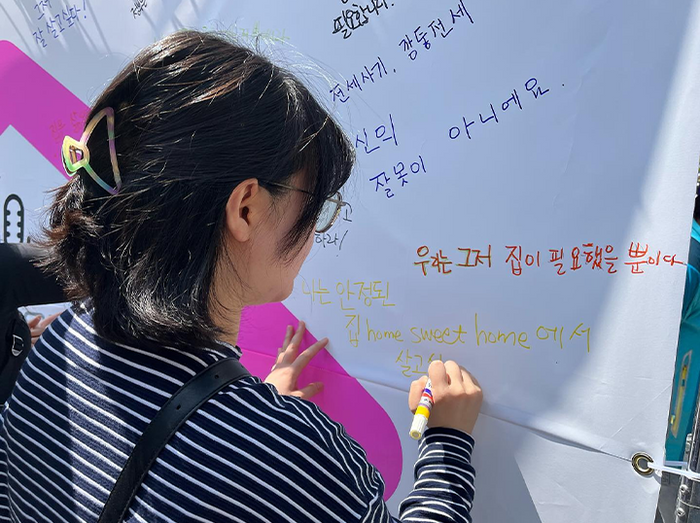 그저
잘 살고싶다!
필요합니다.
전세사기, 깡통전세
신의
아니에요.
잘못이
하라!
우리는 그저 집이 필요했을 뿐이다
나는 안정된
집 home sweet home에서
살고싶